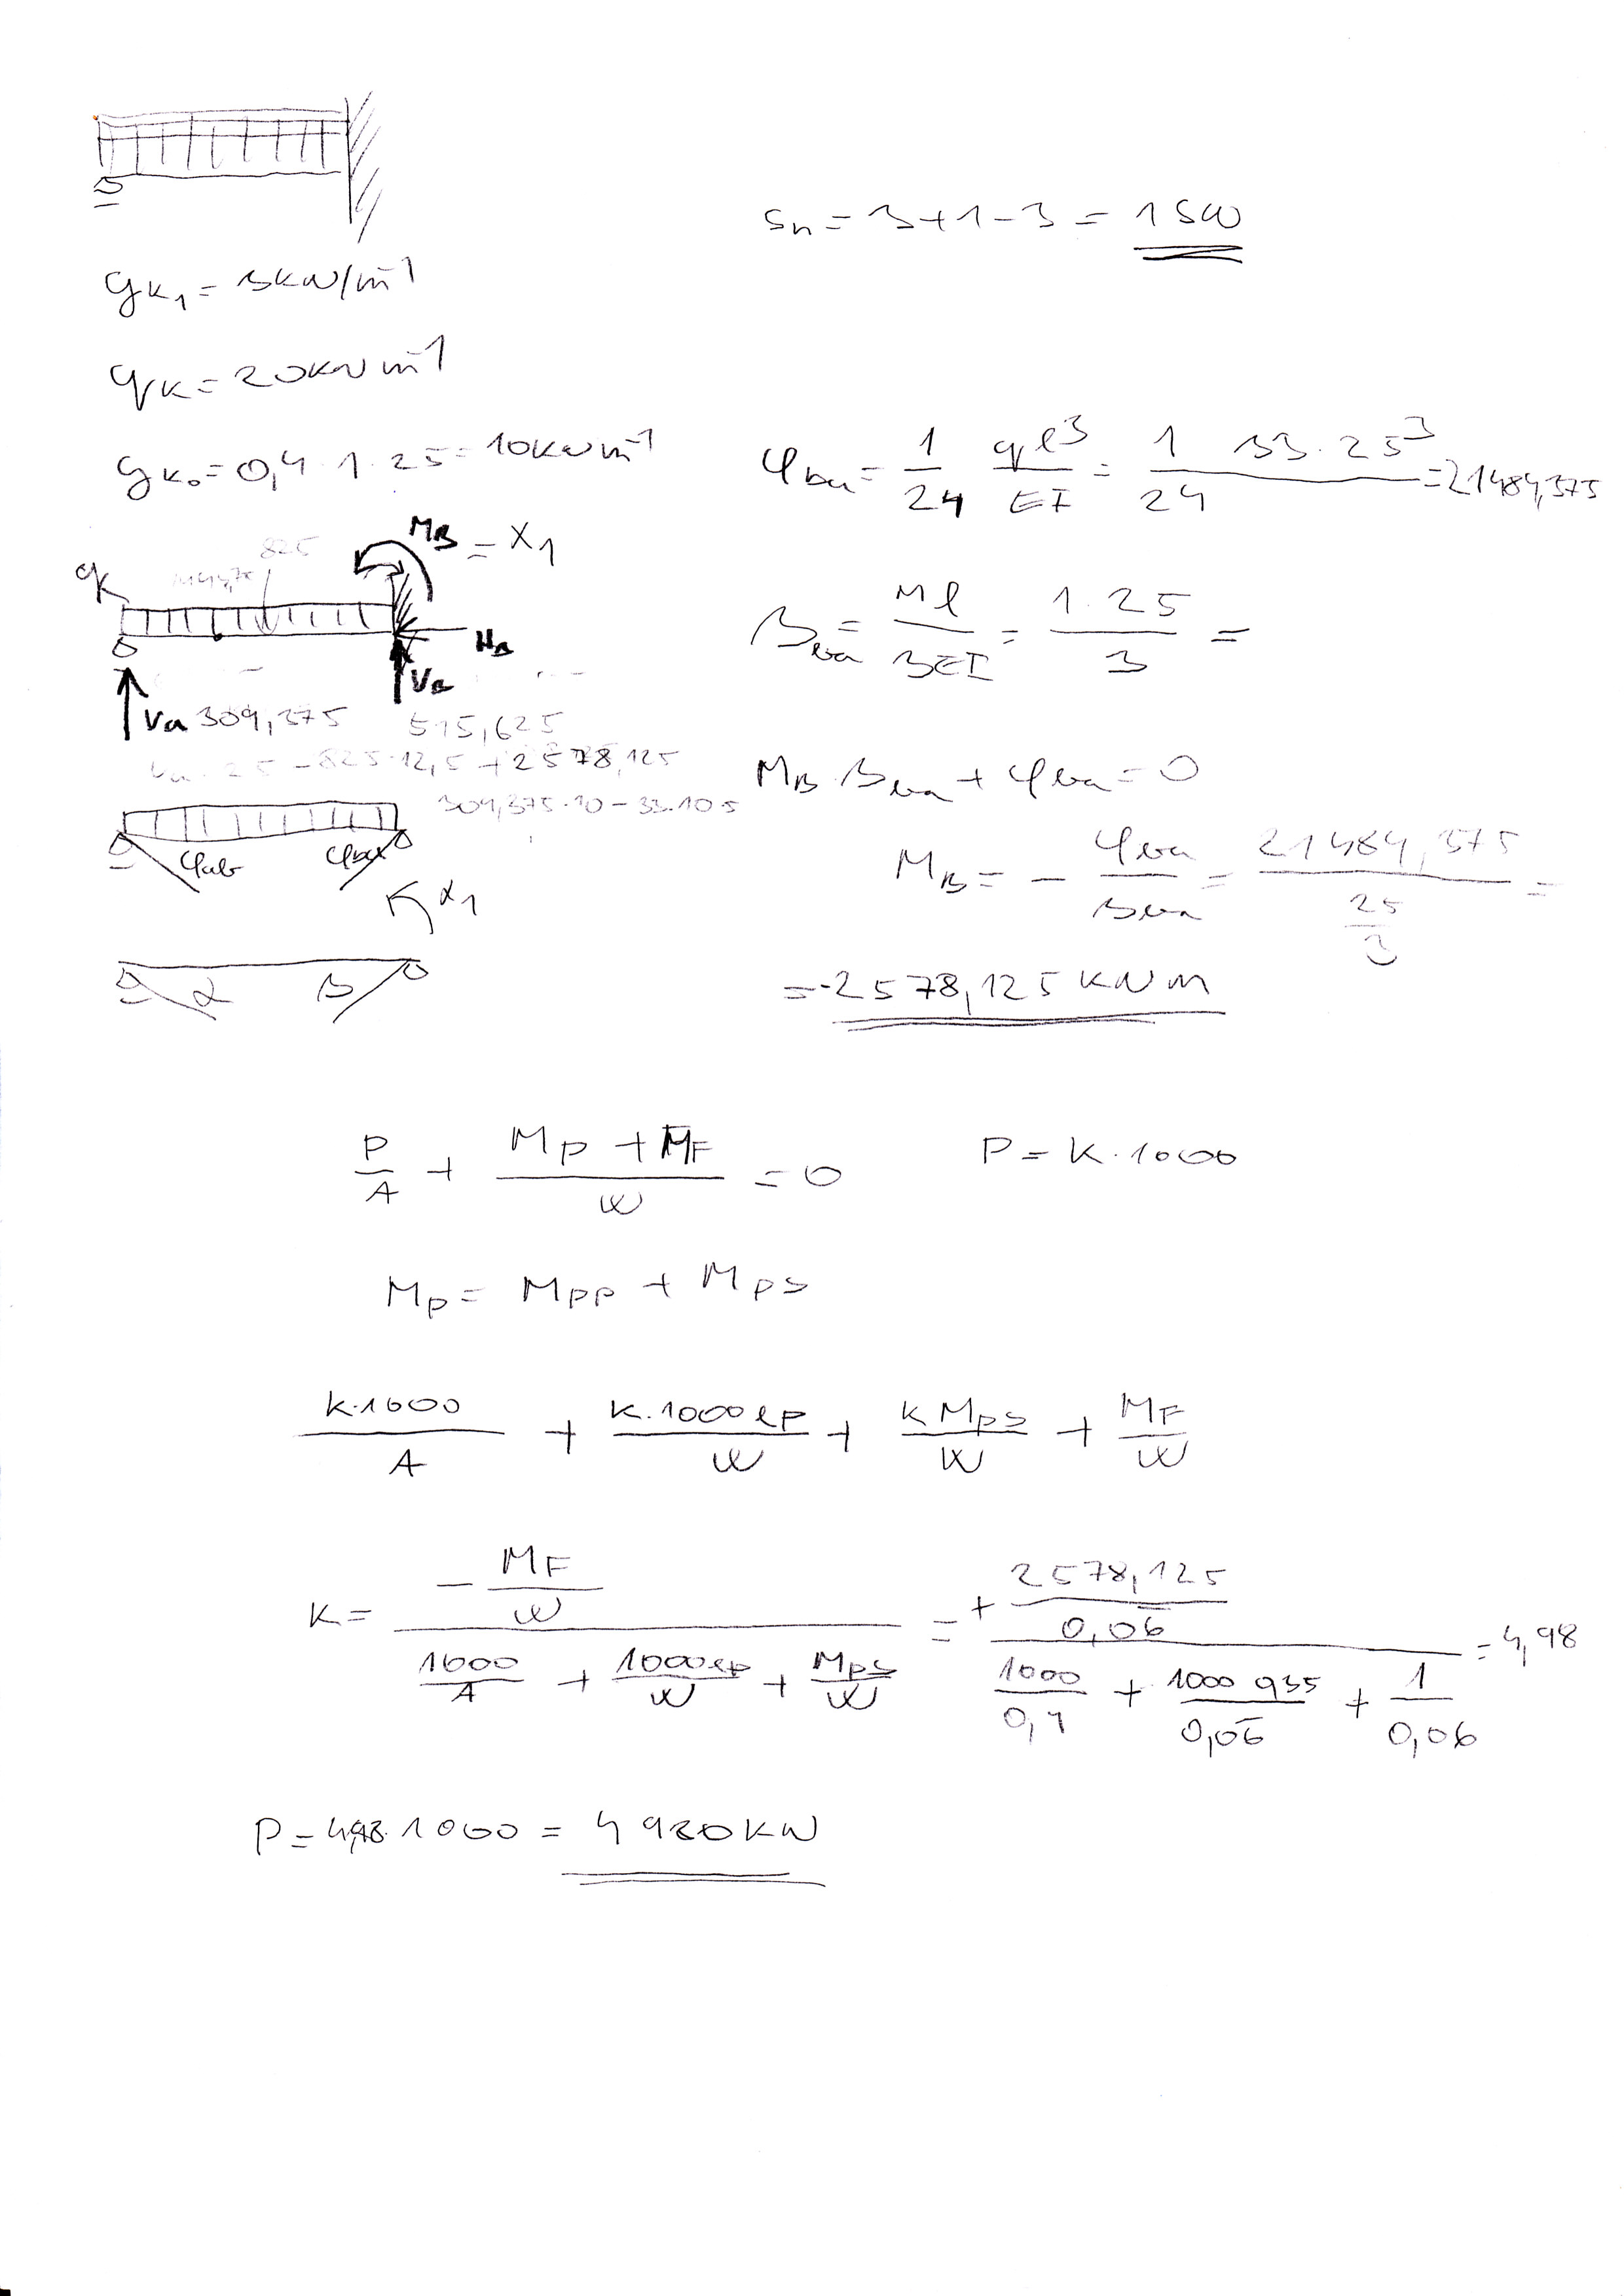 Sn = 3+1-3 = 1 SN
gk1 = 3kN/m-1
qk = 20kNm-1
gk0 = 0,4·1·25 = 10kNm-1
φba = 1/24 ql3/EI = 1/24 33·253 = 21484,375
825
MB = X1
qk
Ha
Va 309,375
VB
515,625
βba = Ml/3EI = 1·25/3 =
Va·25 - 825·12,5 + 2578,125
309,375·10 - 33·10·5
MB·βba + φba = 0
φab φba
X1
MB = - φba/βba = 21484,375/(25/3) =
α β
= -2578,125 kNm
P/A + (MP + MF)/W = 0 P = K·1000
MP = MPP + MPS
K·1000/A + K·1000eP/W + K MPS/W + MF/W
K = (- MF/W)/(1000/A + 1000eP/W + MPS/W) = (+ 2578,125/0,06)/(1000/0,4 + 1000 0,35/0,06 + 1/0,06) = 4,98
P = 4,98·1000 = 4980kN